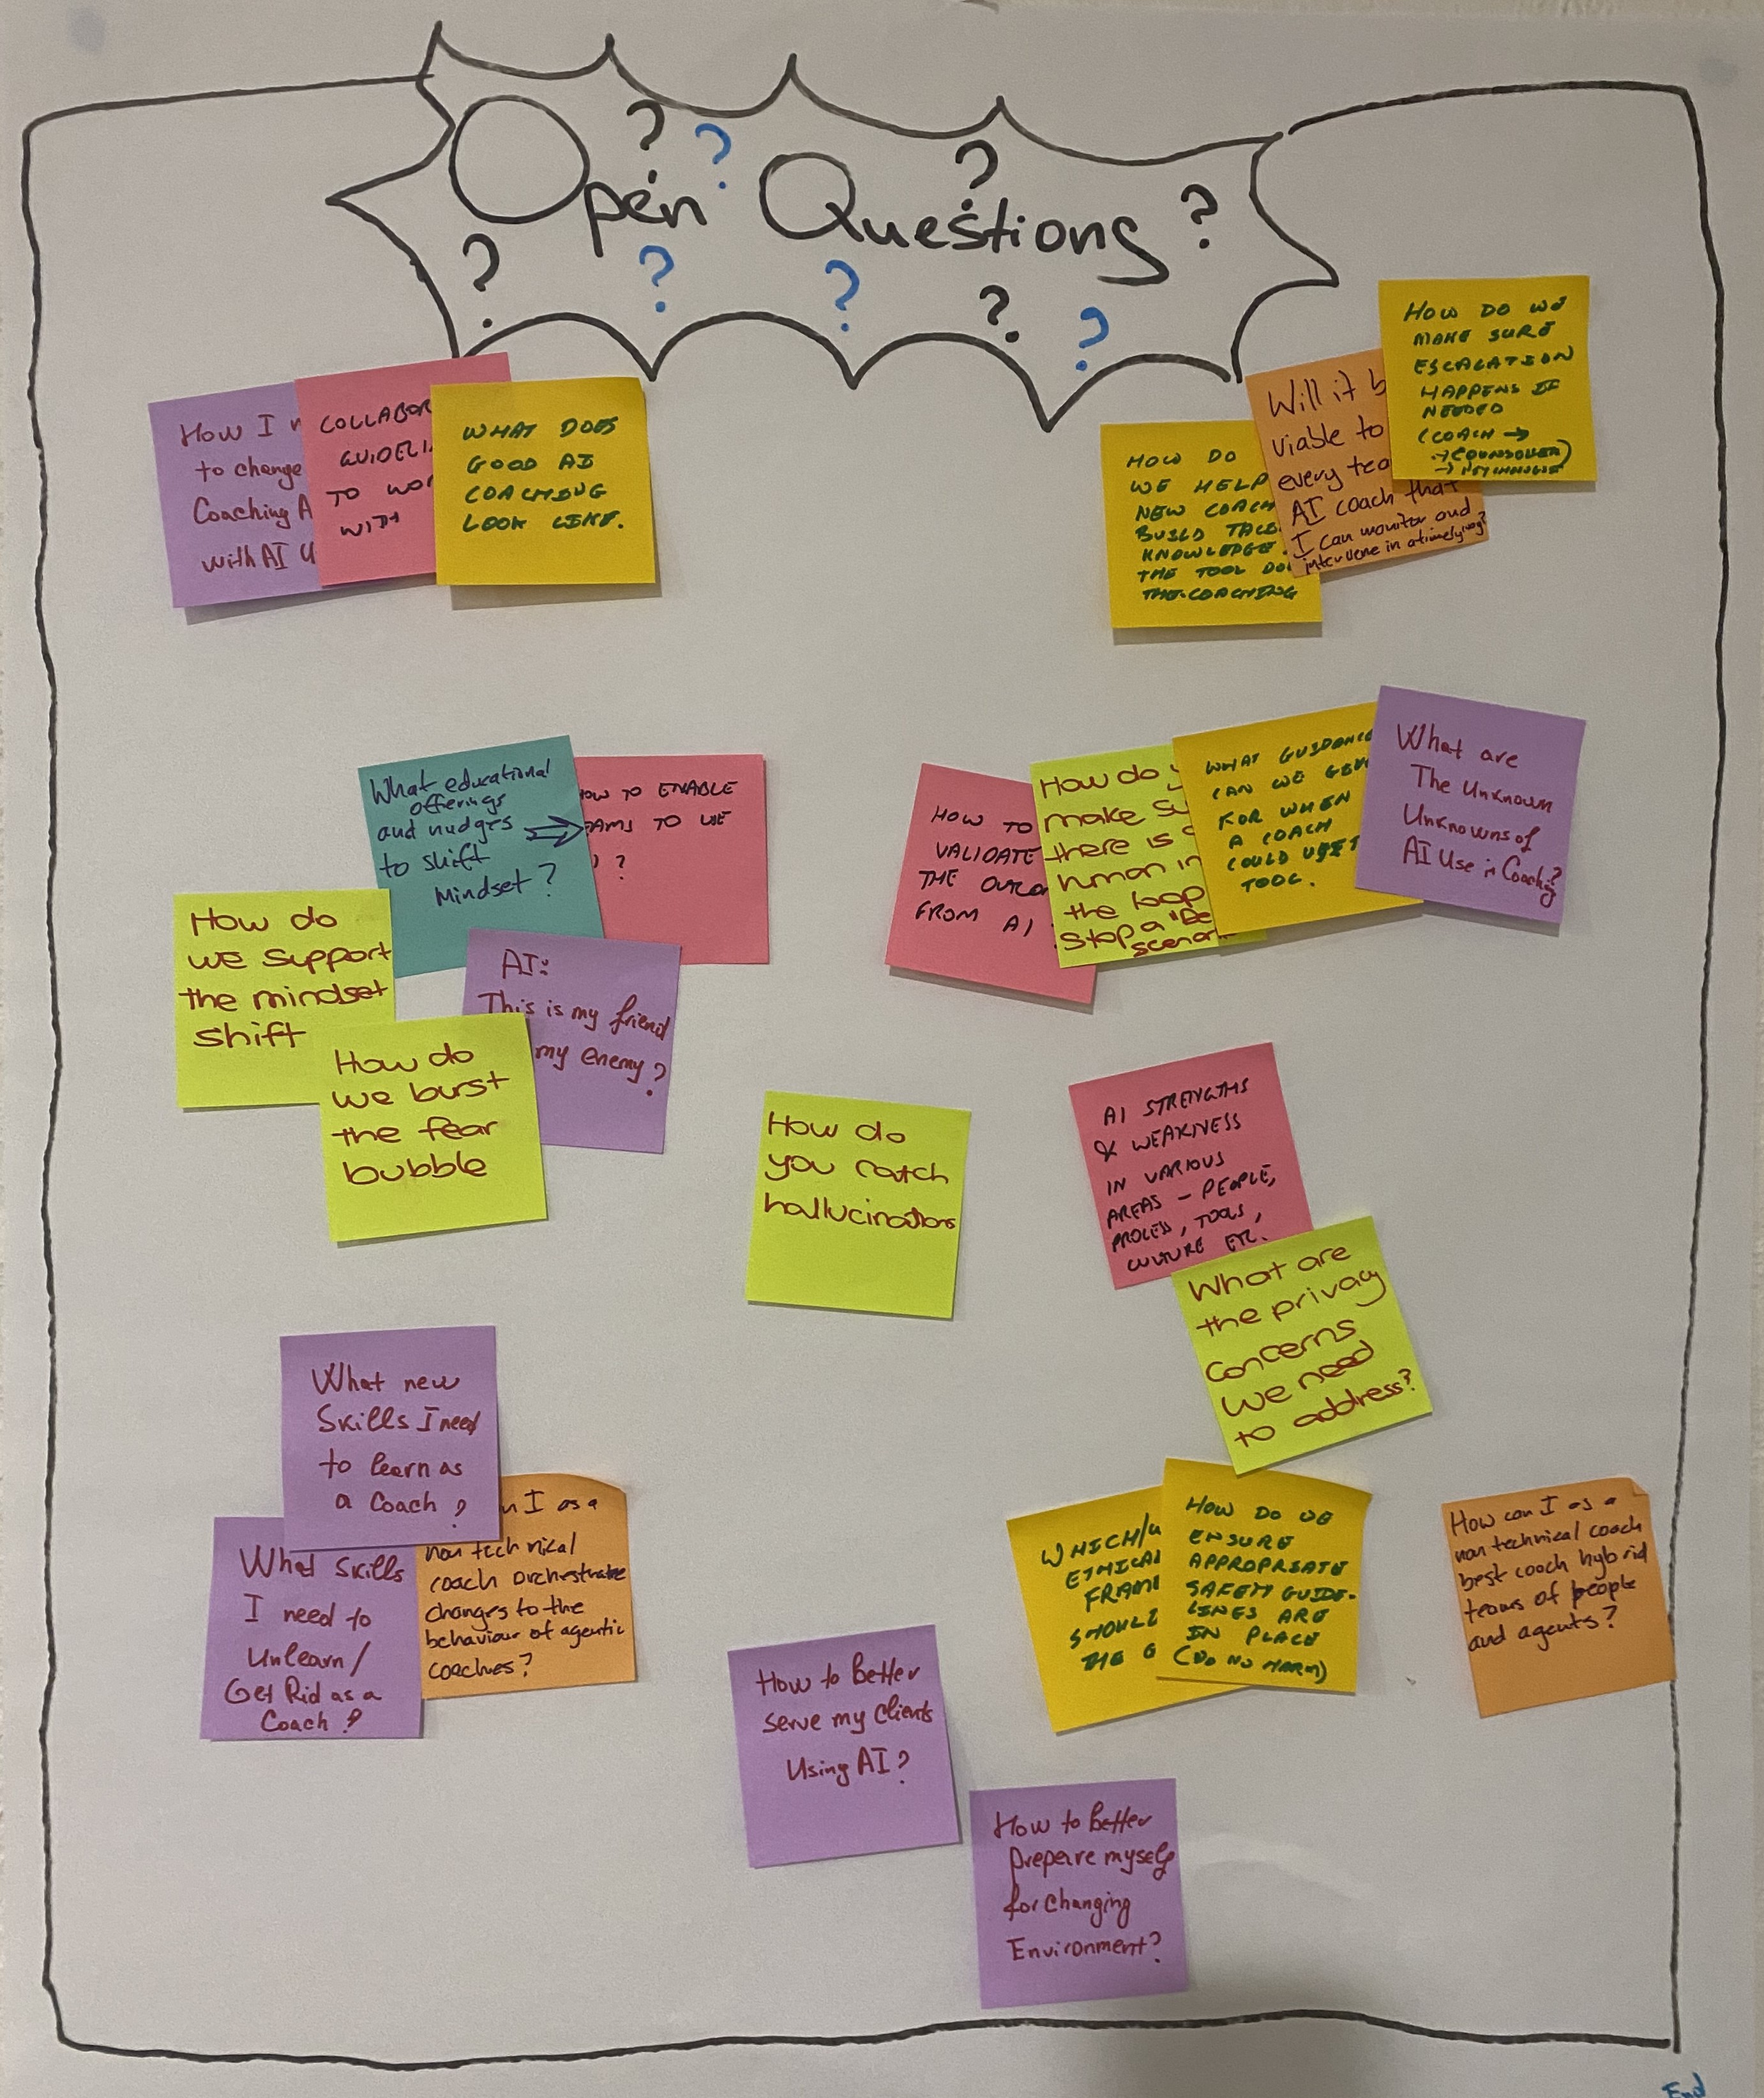 Open Questions ?
? ? ? ?
? ? ? ? ?
How I
to change
Coaching
with AI
GUIDELI
TO
WITH
WHAT DOES
GOOD AI
COACHING
LOOK LIKE.
HOW DO
WE HELP
NEW COACH
BUILD
KNOWLEDGE
THE TOOL
THE COACHING
Will it
viable to
every
AI coach that
I can monitor and
intervene in a timely way?
HOW DO WE
MAKE SURE
ESCALATION
HAPPENS IF
NEEDED
(COACH →
What educational
offerings
and nudges ⇒
to shift
Mindset?
HOW TO ENABLE
TEAMS TO USE
?
How do
we support
the mindset
shift
AI:
This is my friend
my enemy?
How do
we burst
the fear
bubble
HOW TO
VALIDATE
THE
FROM AI
How do
make
there is
human in
the loop
Stop a
WHAT GUIDANCE
CAN WE GIVE
FOR WHEN
A COACH
COULD
TOOL.
What are
The Unknown
Unknowns of
AI Use in Coaching?
How do
you catch
hallucinations
AI STRENGTHS
& WEAKNESS
IN VARIOUS
AREAS – PEOPLE,
PROCESS, TOOLS,
CULTURE ETC.
What are
the privacy
concerns
we need
to address?
What new
Skills I need
to learn as
a Coach?
What skills
I need to
Unlearn/
Get Rid as a
Coach?
I as a
non technical
coach orchestrate
changes to the
behaviour of agentic
coaches?
How to Better
serve my Clients
Using AI?
WHICH/
THE
HOW DO WE
ENSURE
APPROPRIATE
SAFETY GUIDE-
LINES ARE
IN PLACE
(DO NO HARM)
How can I as a
non technical coach
best coach hybrid
teams of people
and agents?
How to Better
prepare myself
for Changing
Environment?
End